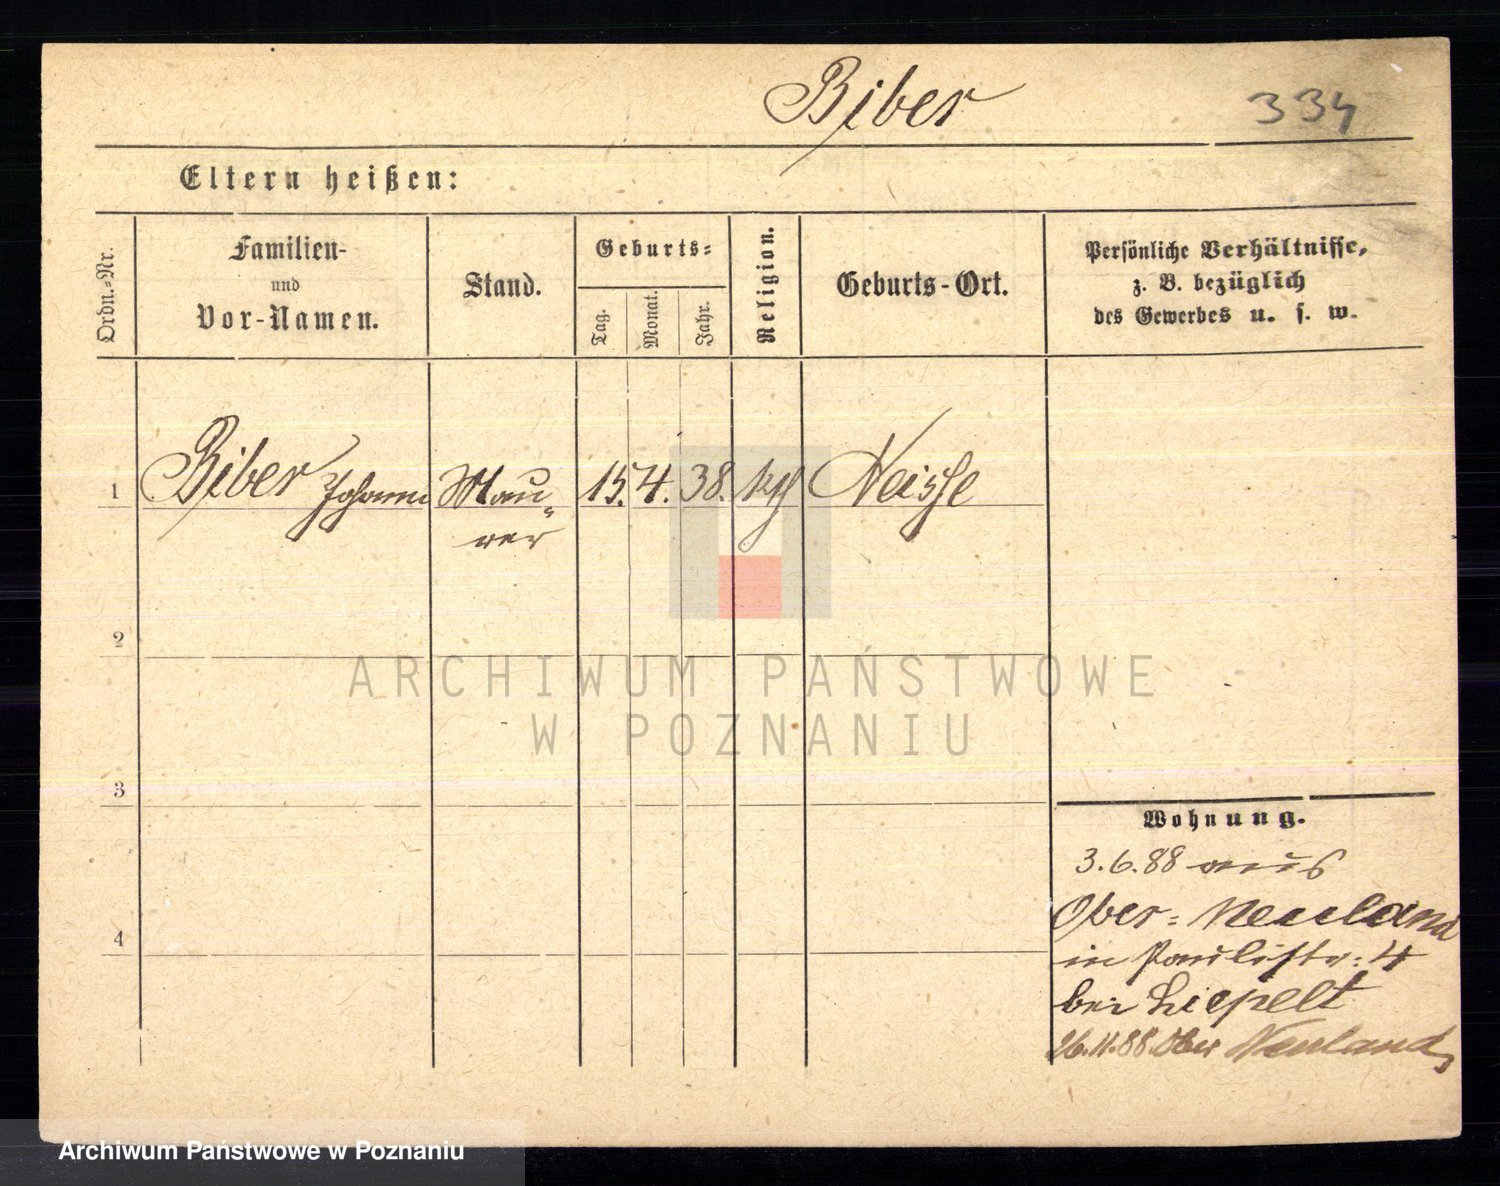 Biber 334
Eltern heißen:
Ordn.-Nr.
Familien-
und
Vor-Namen.
Stand.
Geburts-
Tag.
Monat.
Jahr.
Religion.
Geburts-Ort.
Persönliche Verhältnisse,
z. B. bezüglich
des Gewerbes u. s. w.
1 Biber Johann Mau- 15. 4. 38. kth Neisse
rer
2
3
4
Wohnung.
3.6.88 aus
Ober-Neuland
in Paulistr. 4
bei Liepelt
26.11.88. Ober Neuland
ARCHIWUM PAŃSTWOWE
W POZNANIU
Archiwum Państwowe w Poznaniu